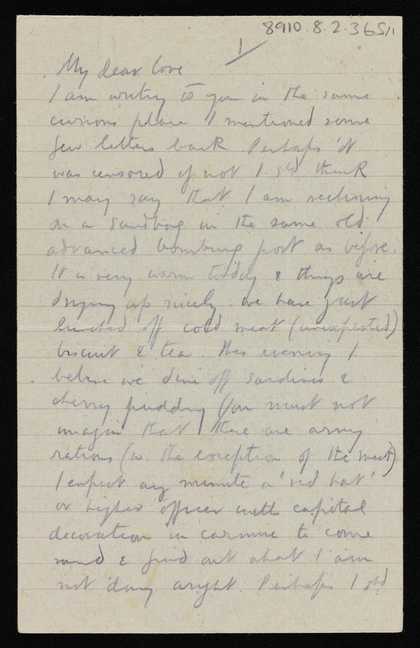 8910.8.2.365/1
1
My dear love
I am writing to you in the same
curious place I mentioned some
few letters back Perhaps it
was censored if not I shd think
I may say that I am reclining
on a sandbag in the same old
advanced bombing post as before.
It is very warm today & things are
drying up nicely. We have just
lunched off cold meat (unexpected)
biscuit & tea. This evening I
believe we dine off sardines &
cherry pudding (You must not
imagine that these are army
rations (w. the exception of the meat)
I expect any minute a 'red hat'
or higher officer with capital
decoration in carmine to come
round & find out what I am
not doing aright. Perhaps I shd